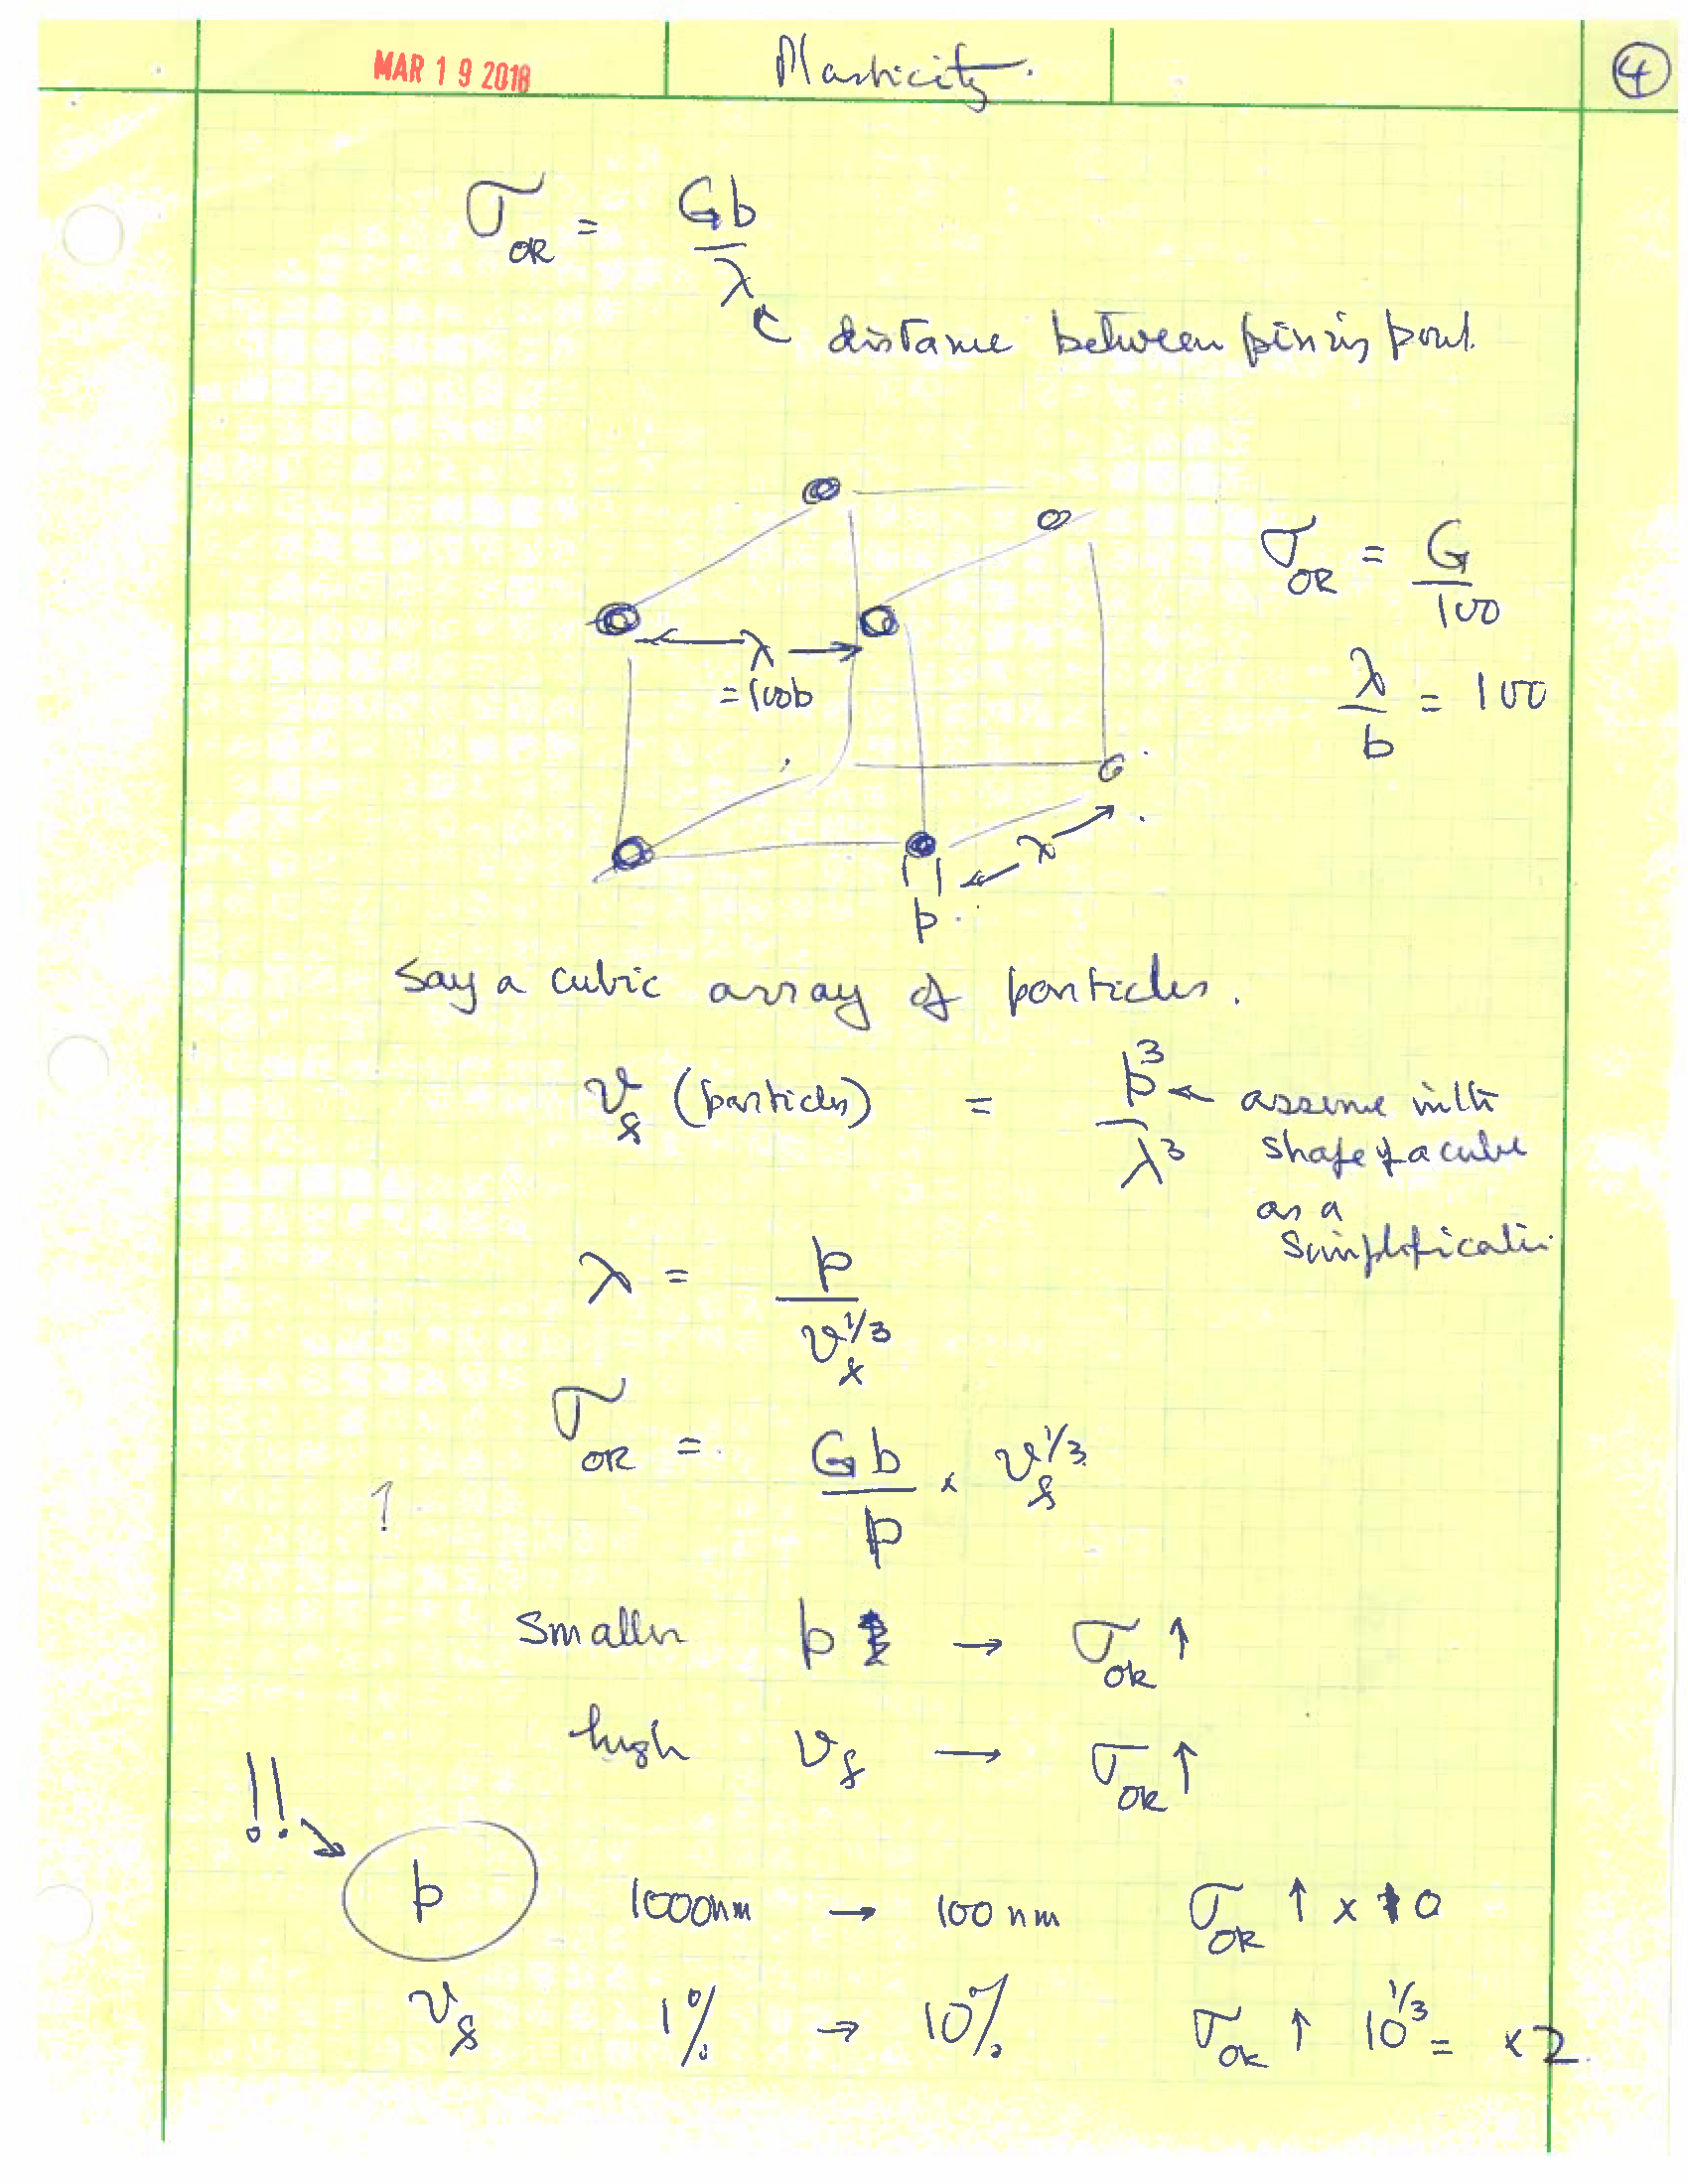 MAR 19 2018 Plasticity. 4
σ_OR = Gb / λ
distance between pinning point.
σ_OR = G / 100
λ
= 100b
λ / b = 100
λ
p
Say a cubic array of particles.
v_f (particles) = p³ / λ³ ← assume with
shape of a cube
as a
simplification
λ = p / v_f^1/3
σ_OR = Gb / p × v_f^1/3
Smaller p → σ_OR ↑
high v_f → σ_OR ↑
!! →
p 1000nm → 100 nm σ_OR ↑ × 10
v_f 1% → 10% σ_OR ↑ 10^1/3 = ×2